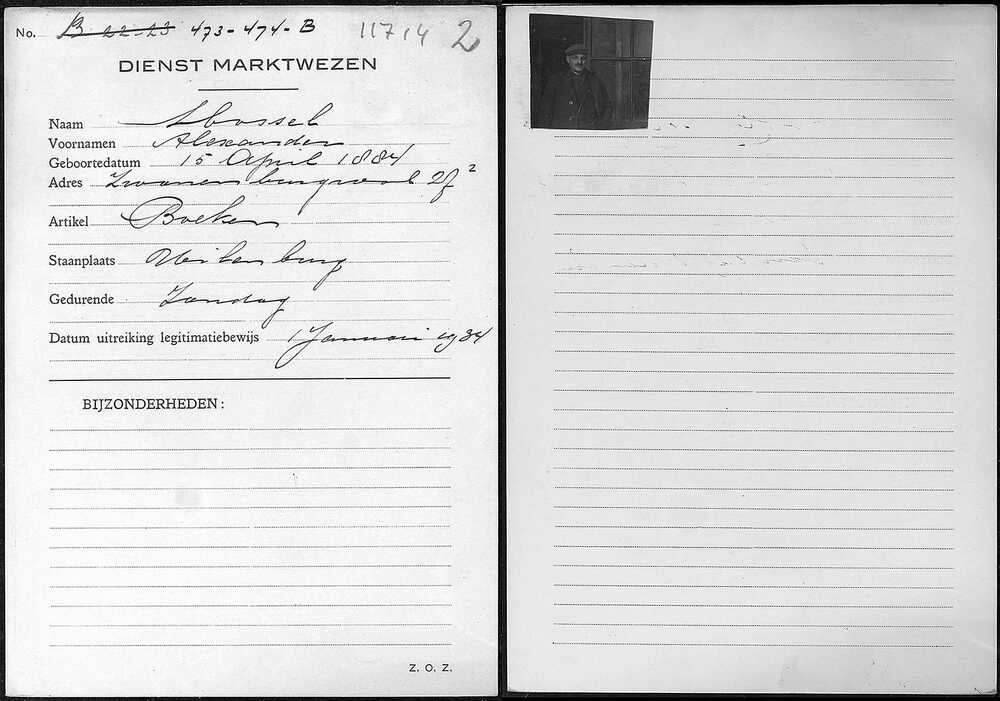 No. B 22-23 473-474-B 11714 2
DIENST MARKTWEZEN
Naam Abossel
Voornamen Alexander
Geboortedatum 15 April 1884
Adres Zwanenburgwal 2
Artikel Boeken
Staanplaats Uilenburg
Gedurende Zondag
Datum uitreiking legitimatiebewijs 1 Januari 1934
BIJZONDERHEDEN:
Z. O. Z.